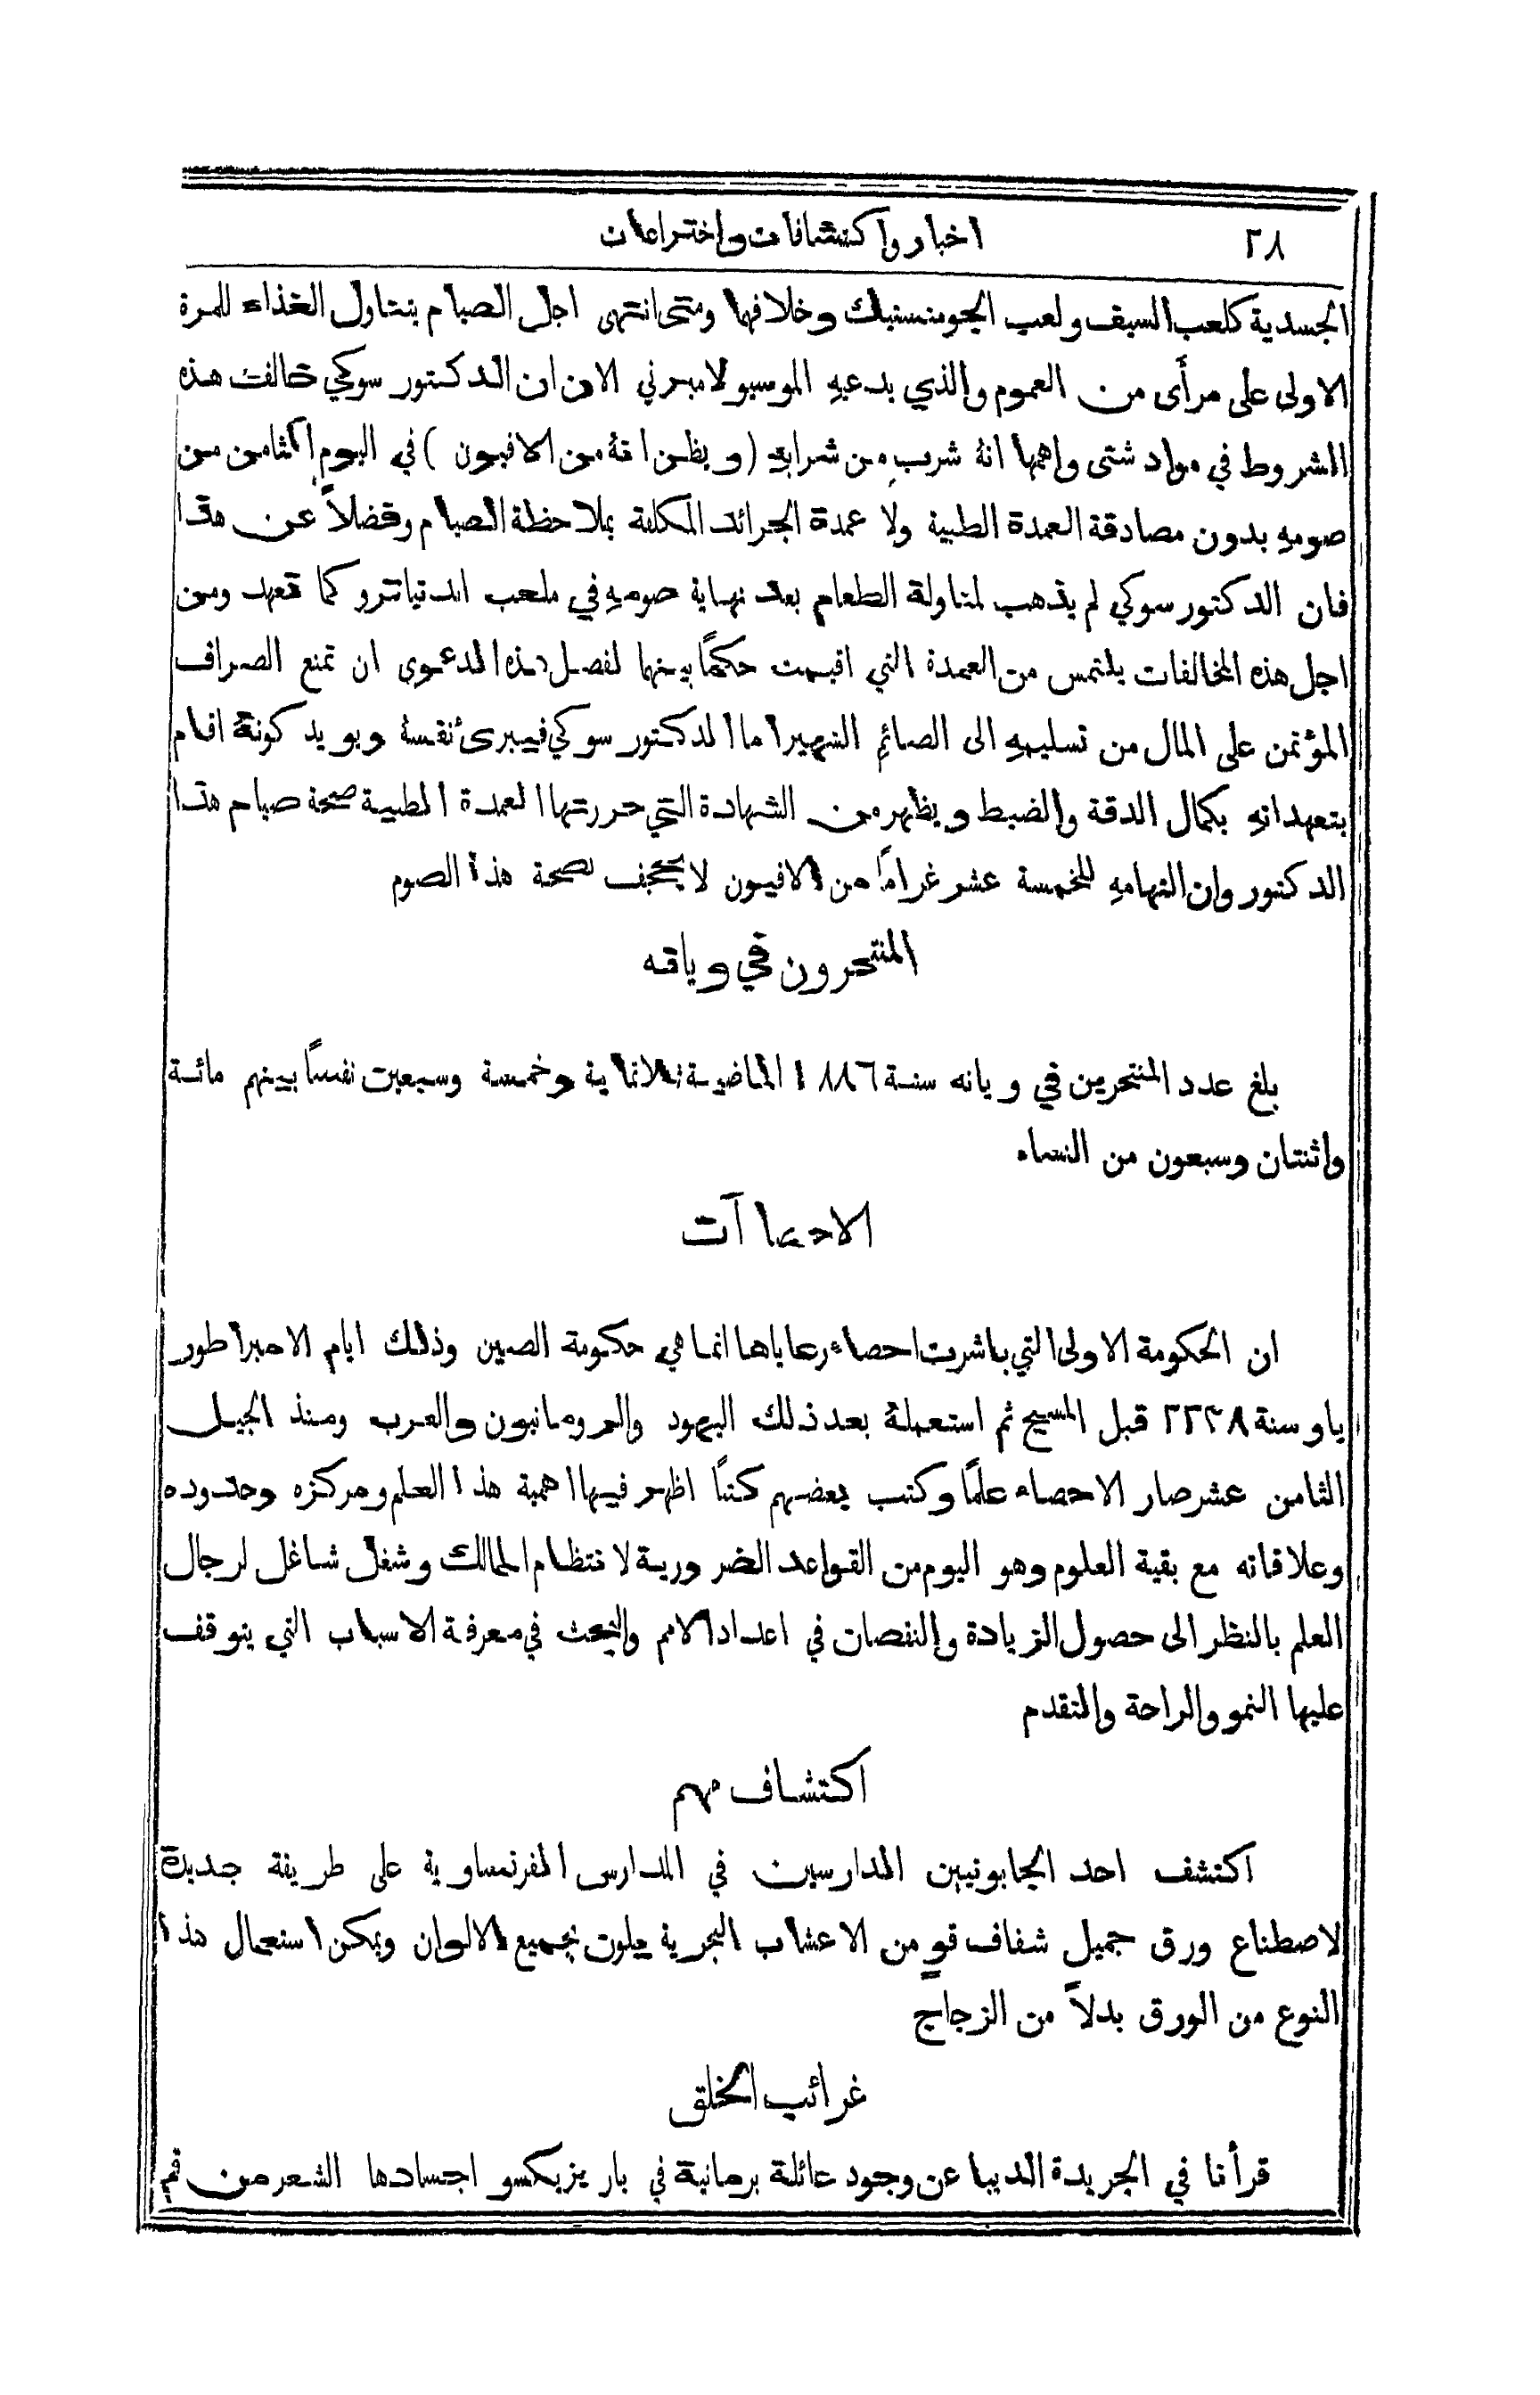 ٢٨
اخبار واكتشافات واختراعات
الجسدية كلعب السيف ولعب الجومنستيك وخلافها ومتى انتهى اجل الصيام بتناول الغذاء للمرة
الاولى على مرأى من العموم والذي يدعيهِ الموسيو لامبرني الان ان الدكتور سوكي خالف هذه
الشروط في مواد شتى واهمها انهُ شرب من شرابهِ (ويظن انهُ من الافيون) في اليوم الثامن من
صومهِ بدون مصادقة العمدة الطبية ولا عمدة الجرائد المكلفة بملاحظة الصيام وفضلاً عن هذا
فان الدكتور سوكي لم يذهب لمناولة الطعام بعد نهاية صومهِ في ملعب اندنياترو كما تعهد ومن
اجل هذه المخالفات يلتمس من العمدة التي اقيمت حكمًا بينهما لفصل هذه الدعوى ان تمنع الصراف
المؤتمن على المال من تسليمهِ الى الصائم الشهير اما الدكتور سوكي فيبرئ نفسهُ ويويد كونهُ اقام
بتعهداتهِ بكمال الدقة والضبط ويظهر من الشهادة التي حررتها العمدة الطبية صحة صيام هذا
الدكتور وان التهامهِ للخمسة عشر غرامًا من الافيون لا يجحف لصحة هذا الصوم
المنتحرون في ويانه
بلغ عدد المنتحرين في ويانه سنة ١٨٨٦ الماضية ثلاثماية وخمسة وسبعين نفسًا بينهم مائة
واثنتان وسبعون من النساء
الاحصاآت
ان الحكومة الاولى التي باشرت احصاء رعاياها انما هي حكومة الصين وذلك ايام الامبراطور
ياو سنة ٢٢٣٨ قبل المسيح ثم استعملهُ بعد ذلك اليهود والرومانيون والعرب ومنذ الجيل
الثامن عشر صار الاحصاء علمًا وكتب بعضهم كتبًا اظهر فيها اهمية هذا العلم ومركزه وحدوده
وعلاقاته مع بقية العلوم وهو اليوم من القواعد الضرورية لانتظام الممالك وشغل شاغل لرجال
العلم بالنظر الى حصول الزيادة والنقصان في اعداد الامم والبحث في معرفة الاسباب التي يتوقف
عليها النمو والراحة والتقدم
اكتشاف مهم
اكتشف احد الجابونيين الدارسين في المدارس الفرنساوية على طريقة جديدة
لاصطناع ورق جميل شفاف قوي من الاعشاب البحرية يلون بجميع الالوان ويمكن استعمال هذا
النوع من الورق بدلاً من الزجاج
غرائب الخلق
قرأنا في الجريدة الديبا عن وجود عائلة برمانية في باريز يكسو اجسادها الشعر من قمم